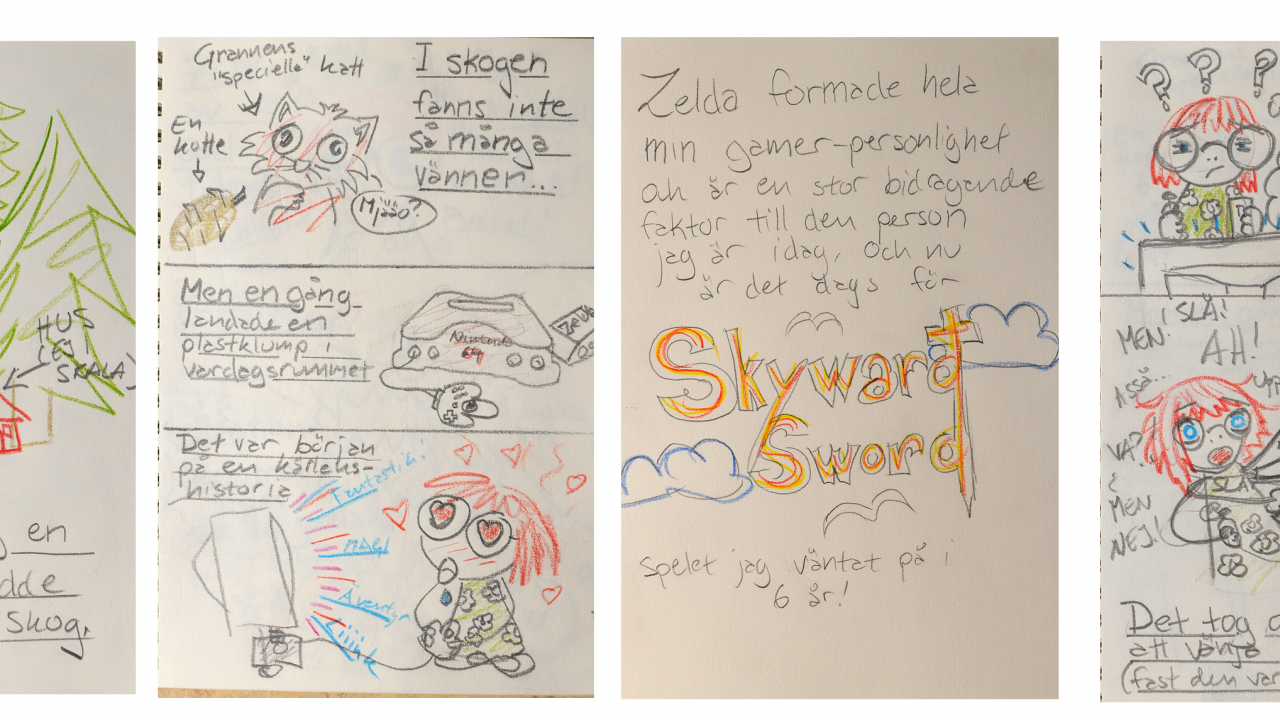 HUS
(EJ
SKALA)
en
dde
skog.
Grannens
"specielle" katt
En
kotte
Mjäo?
I skogen
fanns inte
så många
vänner...
Men en gång
landade en
plastklump i
vardagsrummet
Nintendo
64
Det var början
på en kärleks-
historia
Fantastisk!
MAGI
Äventyr
Zelda formade hela
min gamer-personlighet
och är en stor bidragande
faktor till den person
jag är idag, och nu
är det dags för
Skyward
Sword
spelet jag väntat på i
6 år!
? ? ?
SLÅ!
MEN!
AH!
Asså...
VA?
&
MEN
NEJ!
SLÅ
Det tog
att vänja
(fast den var